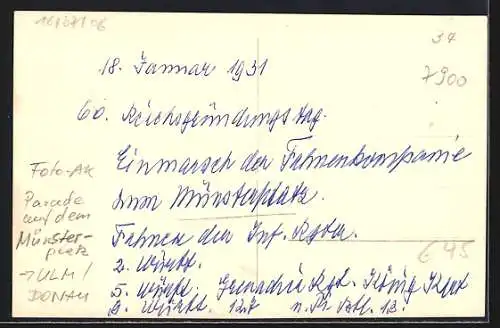 34
7900
18. Januar 1931
60. Reichsgründungstag.
Einmarsch der Fahnenkompanie
zum Münsterplatz.
Fahnen der Inf. Rgter.
2. Württ.
5. Württ. Grenadier Rgt. König Karl
6. Württ. 127 u. Pi. Batl. 13.
Foto-AK
Parade
auf dem
Münster-
platz
→ ULM/
DONAU
€45